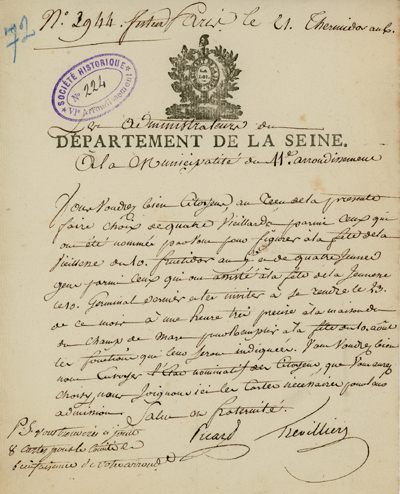 72
N° 2944. Paris, le 21. Thermidor an 6.
LA LOI.
SOCIÉTÉ HISTORIQUE
N° 224
VIe Arrondissement
Les administrateurs du
DÉPARTEMENT DE LA SEINE.
à la Municipalité du 11e. arrondissement
Vous voudrez bien Citoyens au reçu de la présente
faire choix de quatre Vieillards parmi ceux qui
ont été nommés pour figurer à la fête de la
Vieillesse du 10. fructidor an 5. et de quatre jeunes
gens parmi ceux qui ont assisté à la fête de la jeunesse
le 10. Germinal dernier et les inviter à se rendre le 23.
de ce mois à une heure très précise à la maison du
champ de mars pour remplir à la fête du 10. août
les fonctions qui leur seront indiquées. Vous voudrez bien
nous Envoyer l'Etat nominatif des Citoyens que vous aurez
choisis, nous joignons ici les cartes nécessaires pour leur
admission.
Salut et fraternité.
Picard Trevilliers
P.S. vous trouverez ci joint
8 cartes pour le Comité de
bienfaisance de votre arrond.